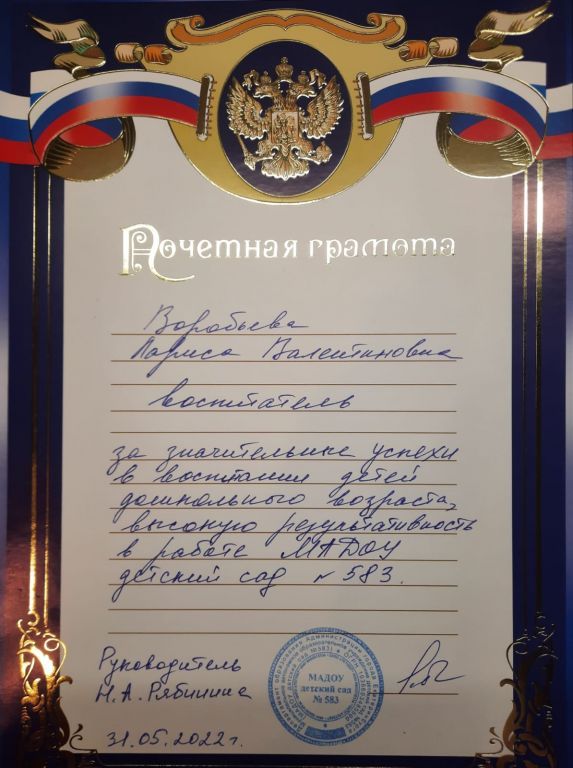 Почетная грамота
Воробьева
Лариса Валентиновна
воспитатель
за значительные успехи
в воспитании детей
дошкольного возраста,
высокую результативность
в работе МАДОУ
детский сад № 583.
Руководитель
Н.А. Рябинина
31.05.2022 г.
МАДОУ
детский сад
№ 583